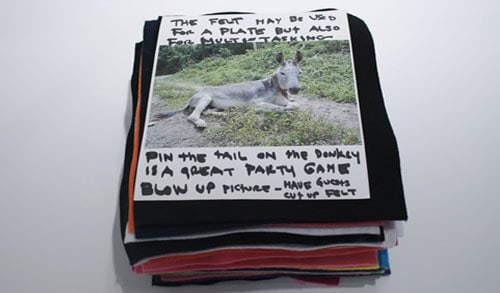 THE FELT MAY BE USED
FOR A PLATE BUT ALSO
FOR MULTI-TASKING
PIN THE TAIL ON THE DONKEY
IS A GREAT PARTY GAME
BLOW UP PICTURE - HAVE GUESTS
CUT UP FELT